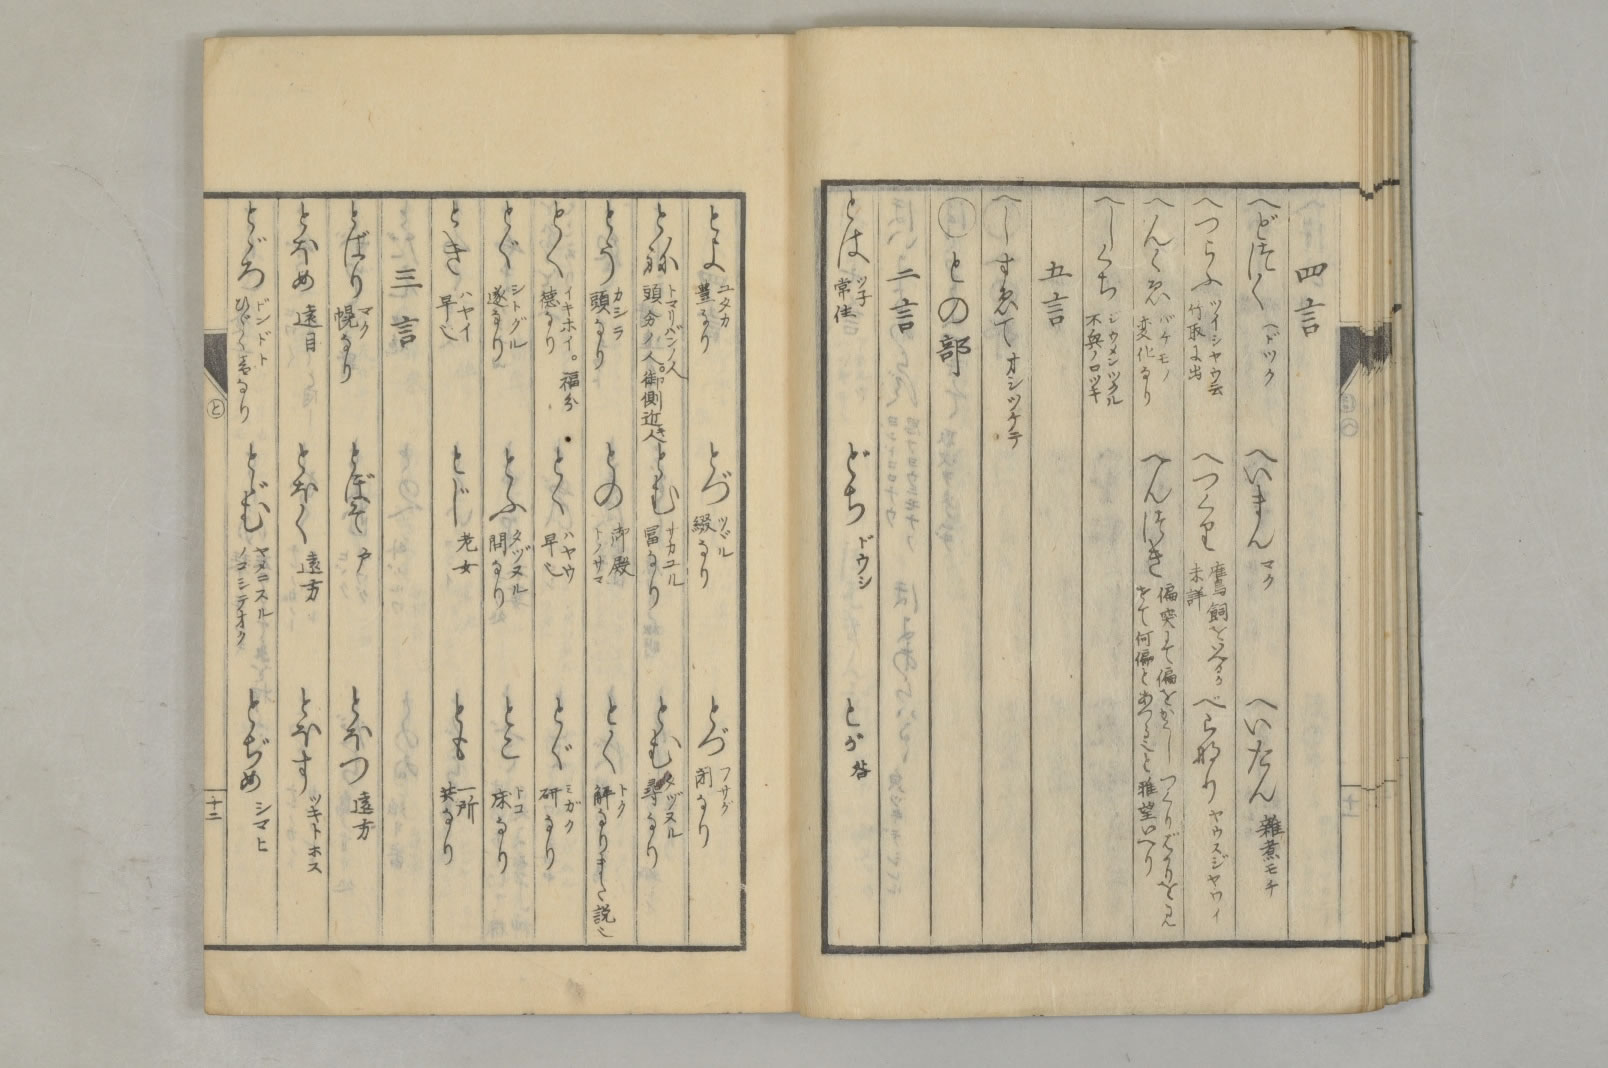 四言
へどつく ヘドツク
へいまん マク
へいたん 雜煮モチ
へつらふ ツイシヤウ云 竹取に出
へつくり 鷹飼をいふか 未詳
べらなり ヤウスジヤワイ
へんぐゑ バケモノ 変化なり
へんつき 偏突にて偏をかくし つくりばかりを見 せて何偏とあつること 雅望いへり
へしくち シウメンツクル 不興ノ口ツキ
五言
へしすゑて オシツケテ
との部
二言
とは ツ子 常住
どち ドウシ
とが 咎
とよ ユタカ 豊なり
とづ ツヾル 綴なり
とづ フサグ 閉なり
とね トマリバンノ人 頭分ノ人御側近き人
とむ サカユル 冨なり
とむ タヅヌル 尋なり
とう カシラ 頭なり
との 御殿 トノサマ
とく トク 解なりまた説也
とく イキホイ。福分 徳なり
とく ハヤウ 早也
とぐ ミガク 研なり
とぐ シトグル 遂なり
とふ タヅヌル 問なり
とこ トコ 床なり
とき ハヤイ 早也
とじ 老女
とも 一所 共なり
三言
とばり マク 幌なり
とぼそ 戸
とほつ 遠方
とほめ 遠目
とほく 遠方
とほす ツキトホス
とどろ ドンドト ひゞく音なり
とどむ ヤメニスル ノコシテオク
とぢめ シマヒ
と
十二